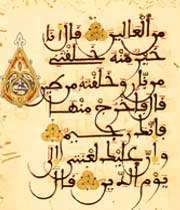 من العالين قال انا
خير منه خلقتني
من نار وخلقته من طين
قال فاخرج منها
فانك رجيم
وان عليك لعنتي الى
يوم الدين قال